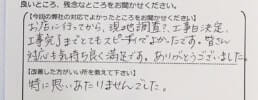 良いところ、残念なところをお聞かせください。
【今回の弊社の対応でよかったところをお聞かせください】
お店に行ってから、現地調査?、工事日決定、
工事完了までとてもスピーディでよかったです。皆さん
対応も気持ち良く満足です。ありがとうございました。
【改善した方がいい所を教えて下さい】
特に思いあたりませんでした。